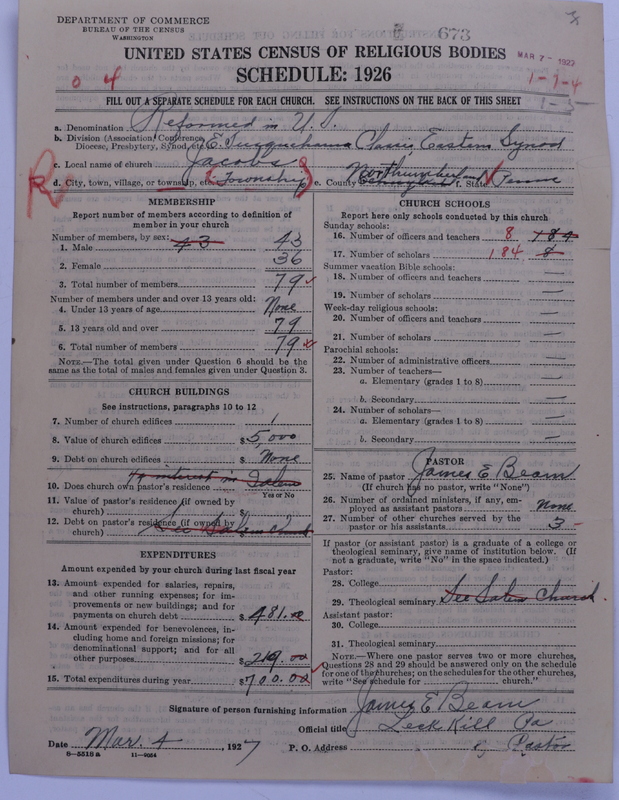 DEPARTMENT OF COMMERCE
BUREAU OF THE CENSUS
WASHINGTON
673
UNITED STATES CENSUS OF RELIGIOUS BODIES
MAR 7 - 1927
SCHEDULE: 1926
0 4
1-7-4
1-3
FILL OUT A SEPARATE SCHEDULE FOR EACH CHURCH. SEE INSTRUCTIONS ON THE BACK OF THIS SHEET
a. Denomination Reformed in U. S.
b. Division (Association, Conference, Diocese, Presbytery, Synod, etc.) E. Susquehanna Classis, Eastern Synod
c. Local name of church Jacobs
d. City, town, village, or township, etc. Township e. County Northumberland f. State Penna
MEMBERSHIP
Report number of members according to definition of
member in your church
Number of members, by sex: 43
1. Male 43
2. Female 36
3. Total number of members 79
Number of members under and over 13 years old:
4. Under 13 years of age None
5. 13 years old and over 79
6. Total number of members 79
NOTE.—The total given under Question 6 should be the
same as the total of males and females given under Question 3.
CHURCH BUILDINGS
See instructions, paragraphs 10 to 12
7. Number of church edifices 1
8. Value of church edifices $5,000
9. Debt on church edifices $ None
10. Does church own pastor's residence interest in Salem
Yes or No
11. Value of pastor's residence (if owned by
church) $
12. Debt on pastor's residence (if owned by
church) See Salem Church
EXPENDITURES
Amount expended by your church during last fiscal year
13. Amount expended for salaries, repairs,
and other running expenses; for im-
provements or new buildings; and for
payments on church debt $481.00
14. Amount expended for benevolences, in-
cluding home and foreign missions; for
denominational support; and for all
other purposes $219.00
15. Total expenditures during year $700.00
CHURCH SCHOOLS
Report here only schools conducted by this church
Sunday schools:
16. Number of officers and teachers 8 184
17. Number of scholars 184 8
Summer vacation Bible schools:
18. Number of officers and teachers —
19. Number of scholars —
Week-day religious schools:
20. Number of officers and teachers —
21. Number of scholars —
Parochial schools:
22. Number of administrative officers —
23. Number of teachers—
a. Elementary (grades 1 to 8) —
b. Secondary —
24. Number of scholars—
a. Elementary (grades 1 to 8) —
b. Secondary —
PASTOR
25. Name of pastor James E Beam
(If church has no pastor, write "None")
26. Number of ordained ministers, if any, em-
ployed as assistant pastors None
27. Number of other churches served by the
pastor or his assistants 3
If pastor (or assistant pastor) is a graduate of a college or
theological seminary, give name of institution below. (If
not a graduate, write "No" in the space indicated.)
Pastor:
28. College
29. Theological seminary See Salem Church.
Assistant pastor:
30. College
31. Theological seminary
NOTE.—Where one pastor serves two or more churches,
Questions 28 and 29 should be answered only on the schedule
for one of the churches; on the schedules for the other churches,
write "See schedule for church."
Signature of person furnishing information James E Beam
Official title Leck Kill Pa
Date Mar. 4, 1927 P. O. Address Pastor
8-5518a 11-9054